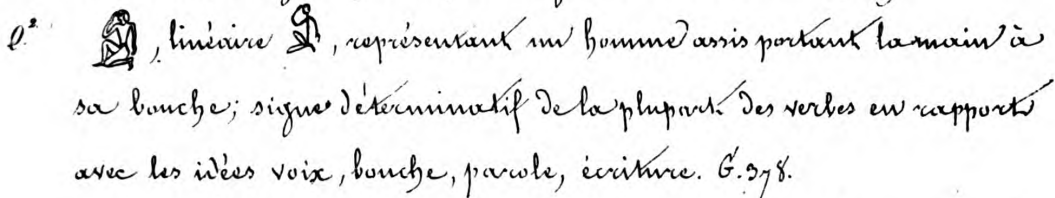 e.² 𓀁, linéaire 𓀁, représentant un homme assis portant la main à
sa bouche; signe déterminatif de la plupart des verbes en rapport
avec les idées voix, bouche, parole, écriture. G. 378.